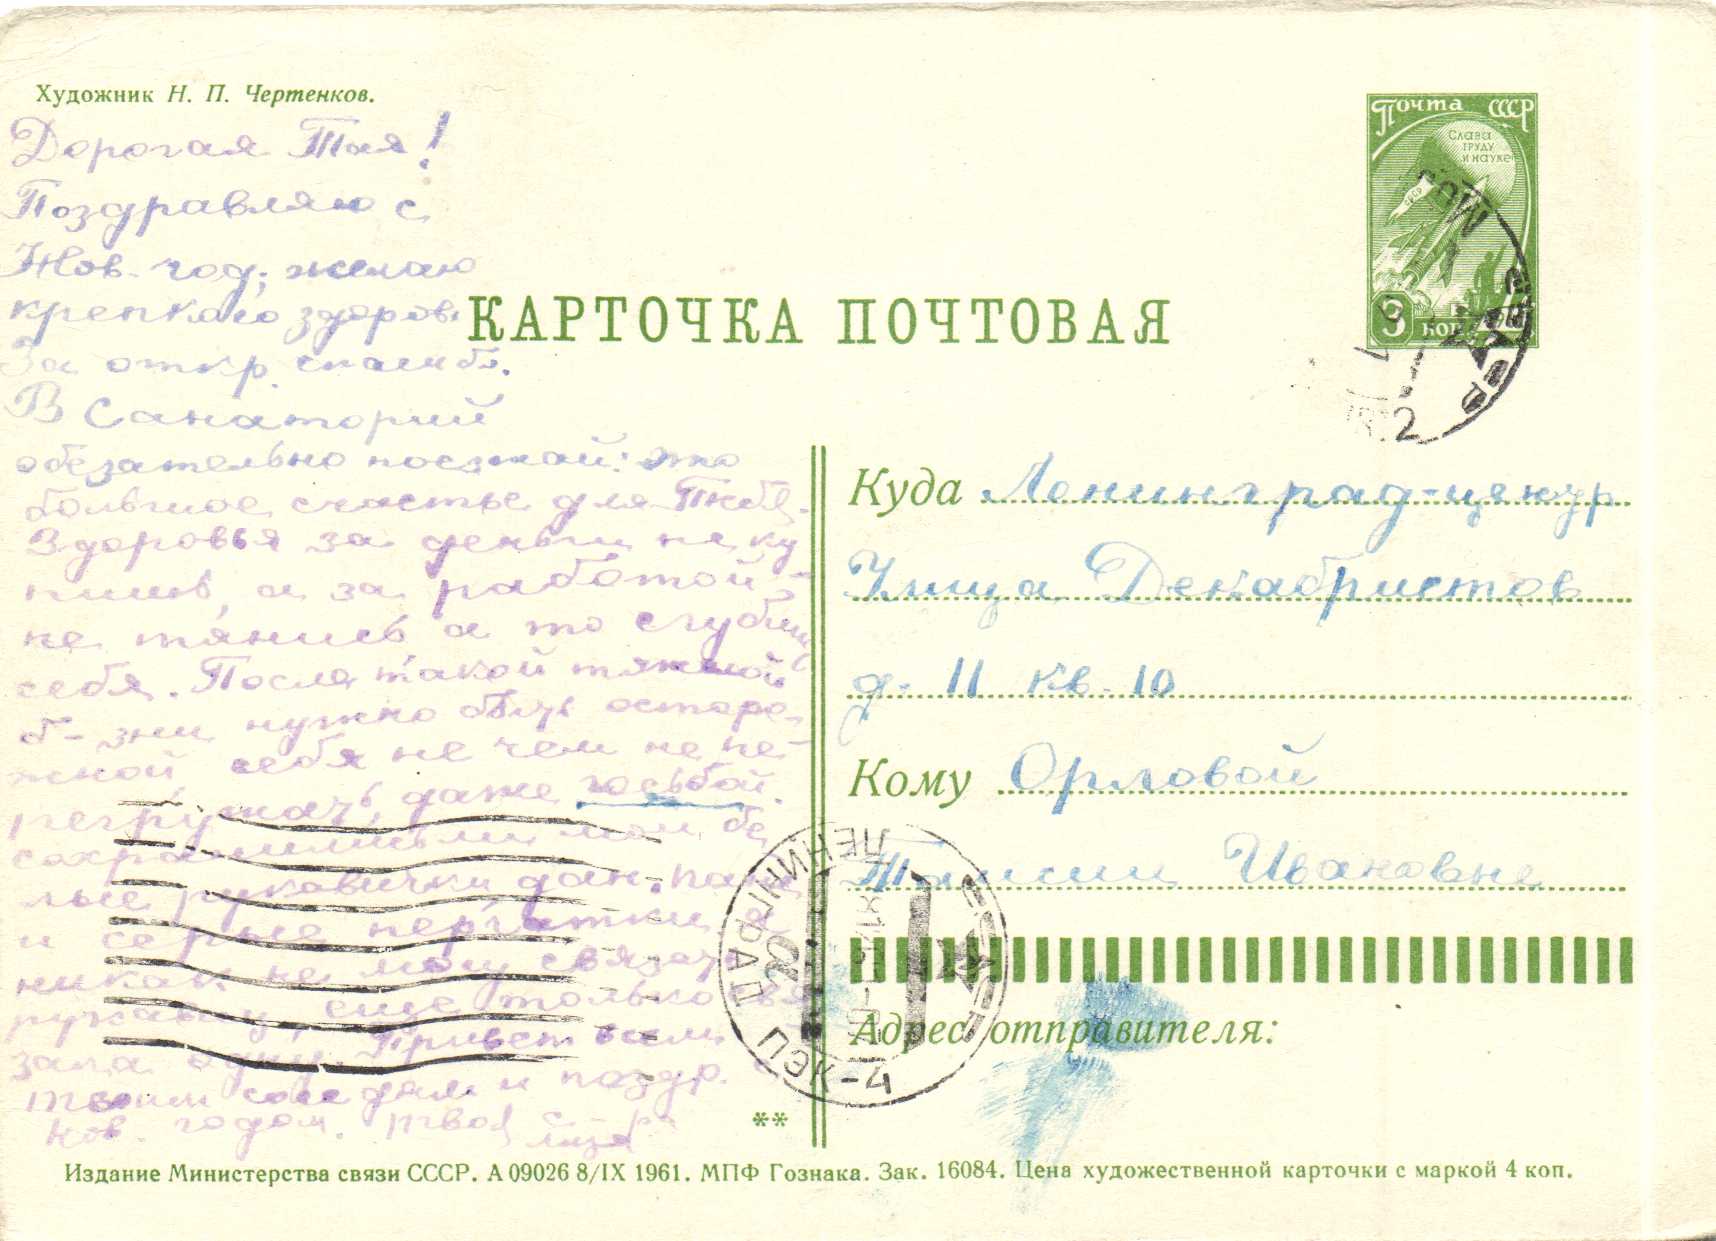 Художник Н. П. Чертенков.
Почта СССР
Слава
труду
и науке
СССР
3 коп
КАРТОЧКА ПОЧТОВАЯ
Дорогая Тая!
Поздравляю с
Нов. год; желаю
крепкого здоров.
За откр. спасибо.
В Санаторий
обезательно поезжай: это
большое счастье для Тебя.
Здоровья за деньги не ку
пишь, а за работой
не тянись а то сгубишь
себя. После такой тяжелой
б-зни нужно быть осторо
жной себя не чем не пе-
регружать, даже
сохранились мои бе
лые рукавички, дон.
и серые перчатки а
никак не могу связать
рукавиц, еще только вя
зала одну. Привет всем
твоим соседям и поздр. с
нов. годом. Твоя
Куда Ленинград-центр
Улица Декабристов
д. 11 кв. 10
Кому Орловой
Таисии Ивановне
ЛЕНИНГРАД
4-ЭКСП
Адрес отправителя:
**
Издание Министерства связи СССР. А 09026 8/IX 1961. МПФ Гознака. Зак. 16084. Цена художественной карточки с маркой 4 коп.